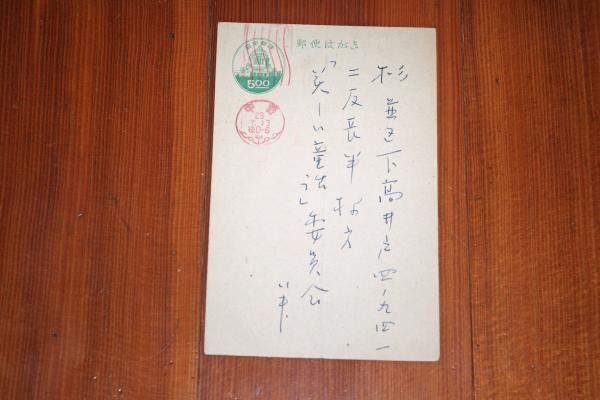 郵便はがき
杉並区下高井戸四ノ九四一
二反長半様方
「美しい童話」委員会
御中
500
中野
29